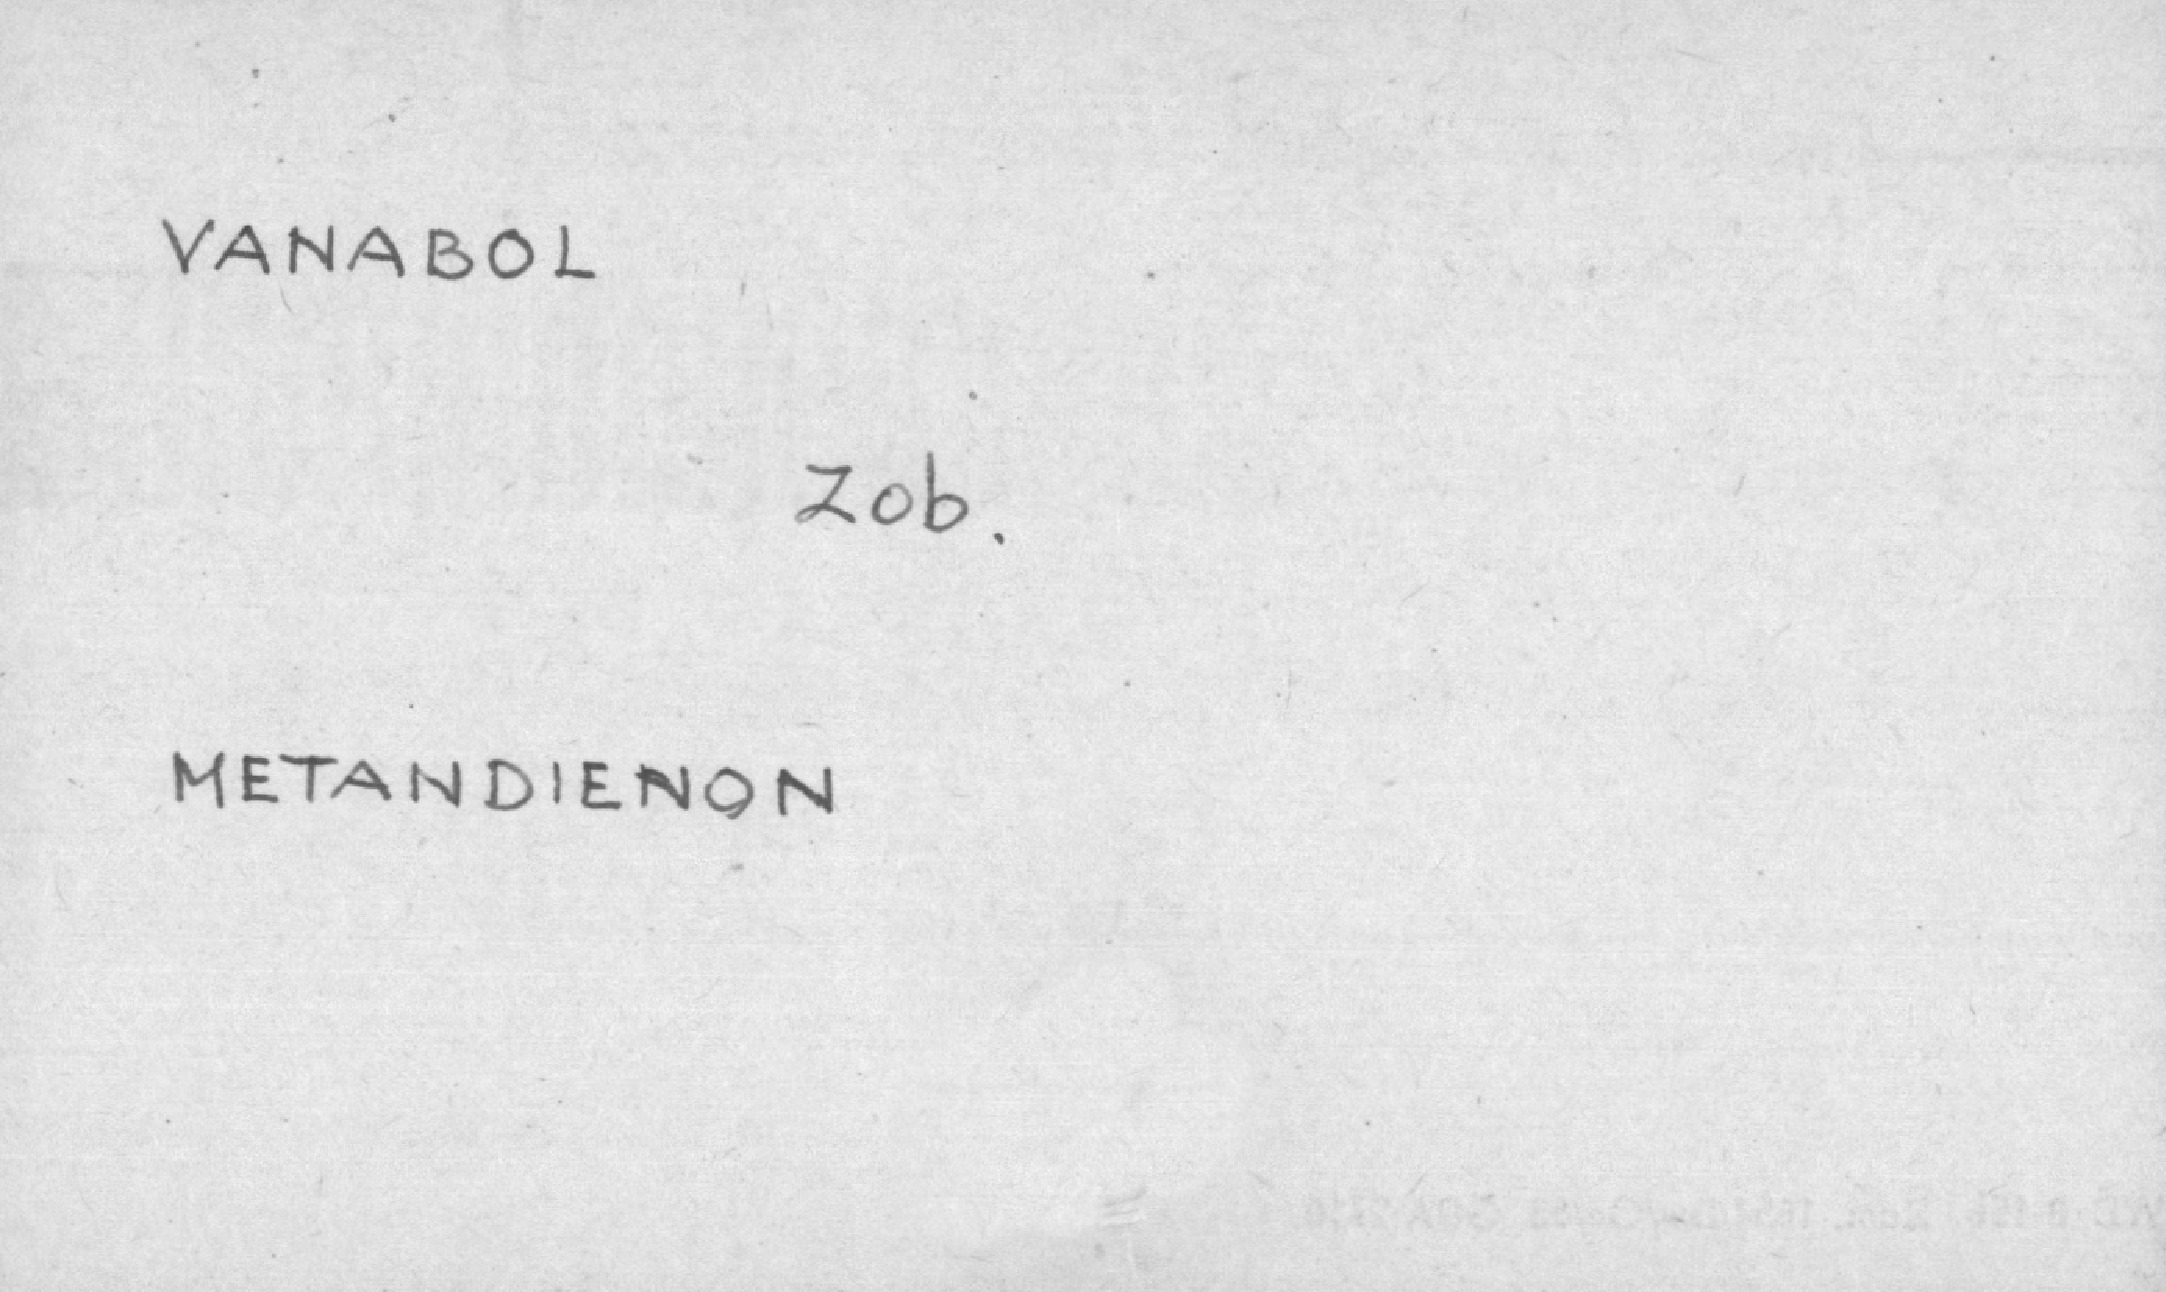 VANABOL
Zob.
METANDIENON